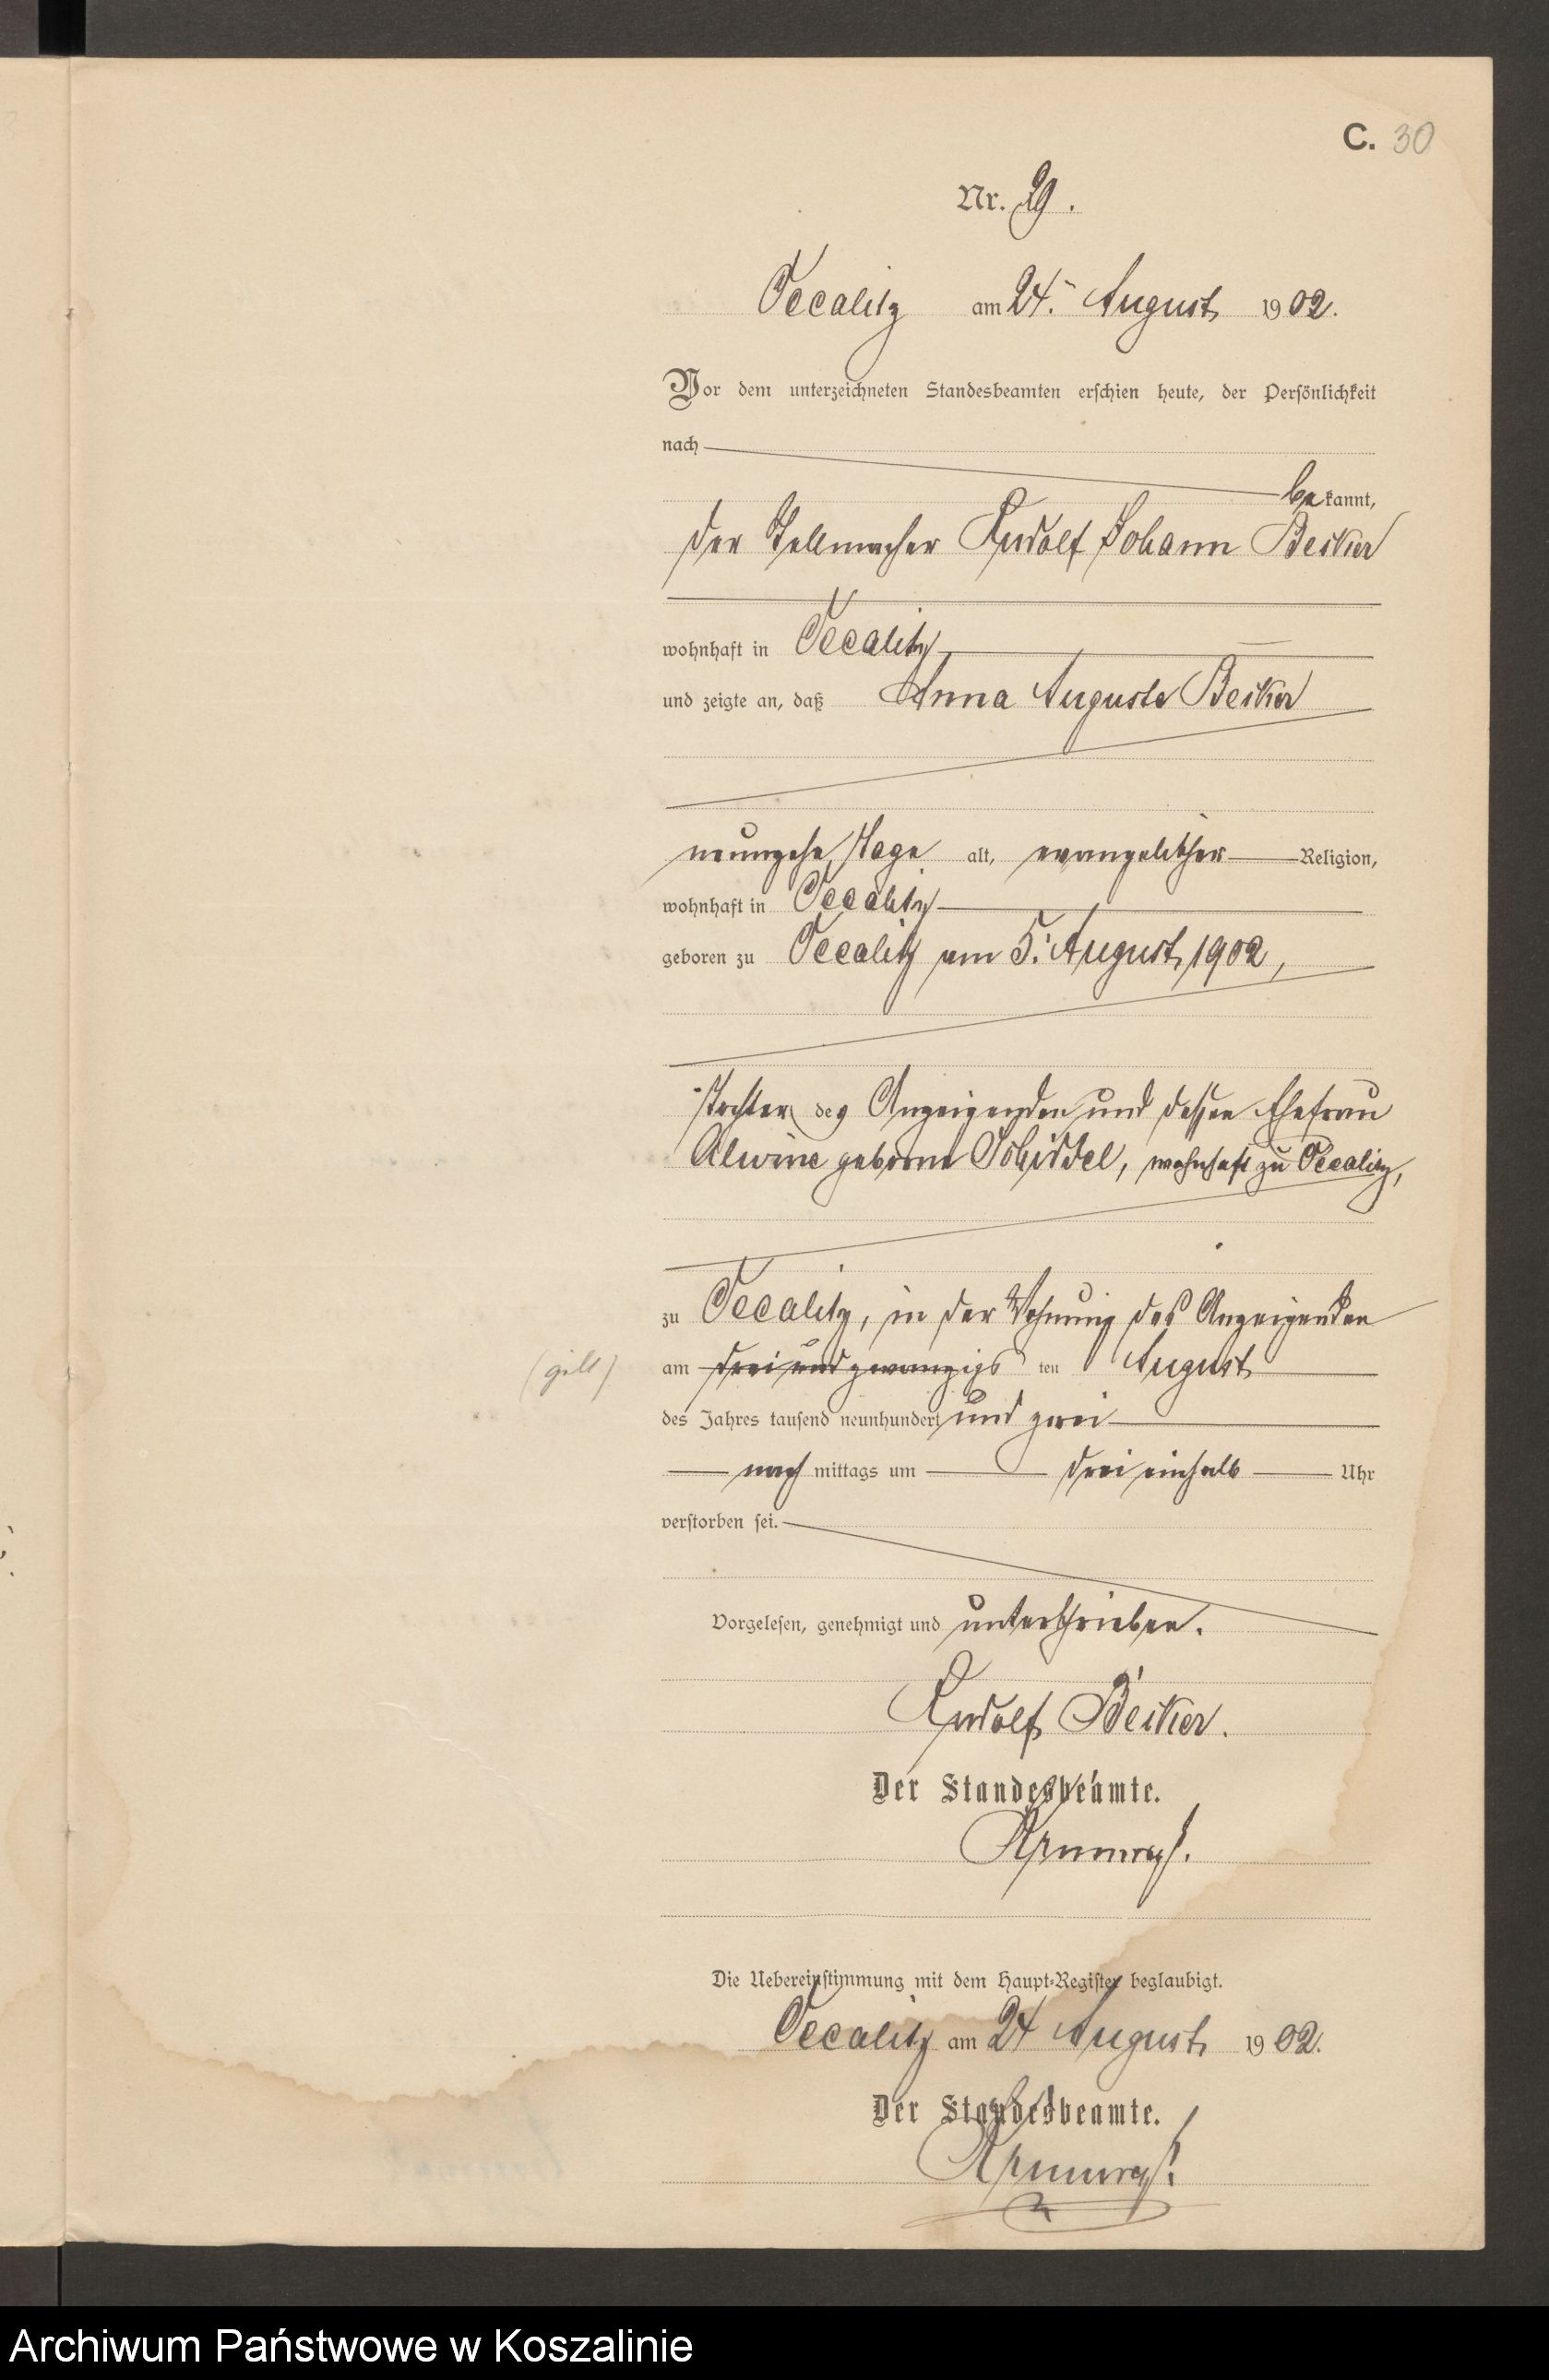 C. 30
Nr. 29.
Vecalitz am 24. August 1902.
Vor dem unterzeichneten Standesbeamten erschien heute, der Persönlichkeit
nach
bekannt,
der Stellmacher Rudolf Johann Becker
wohnhaft in
und zeigte an, daß Anna Auguste Becker
neunzehn Tage alt, evangelischer Religion,
wohnhaft in
geboren zu am 5. August 1902,
Tochter des Anzeigenden und dessen Ehefrau
Alwine geborne wohnhaft zu
zu in der Wohnung des Anzeigenden
(gilt) am drei und zwanzigs ten August
des Jahres tausend neunhundert und zwei
nach mittags um drei einhalb Uhr
verstorben sei.
Vorgelesen, genehmigt und unterschrieben.
Rudolf Becker.
Der Standesbeamte.
Die Uebereinstimmung mit dem Haupt-Register beglaubigt.
am 24 August 1902.
Der Standesbeamte.
Archiwum Państwowe w Koszalinie